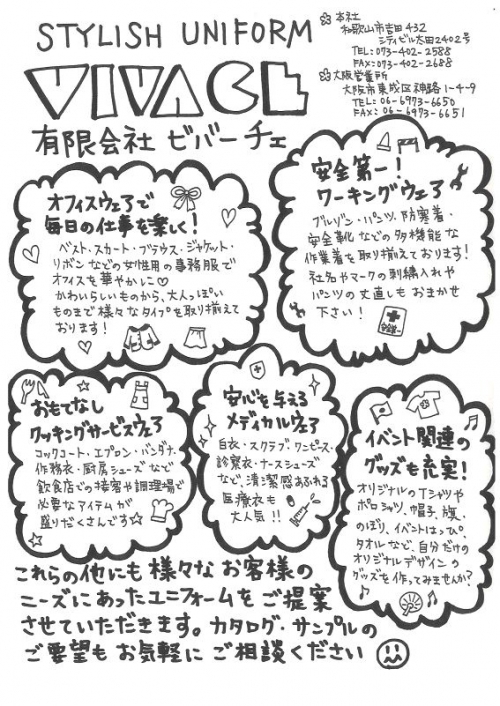 STYLISH UNIFORM
VIVACE
有限会社 ビバーチェ
本社
和歌山市吉田432
シティビル太田2402号
TEL:073-402-2588
FAX:073-402-2688
大阪営業所
大阪市東成区神路1-4-9
TEL:06-6973-6650
FAX:06-6973-6651
オフィスウェアで
毎日の仕事を楽しく!
ベスト・スカート・ブラウス・ジャケット・
リボンなどの女性用の事務服で
オフィスを華やかに♡
かわいらしいものから、大人っぽい
ものまで様々なタイプを取り揃えて
おります!
安全第一!
ワーキングウェア
ブルゾン・パンツ・防寒着・
安全靴などの多機能な
作業着を取り揃えております!
社名やマークの刺繍入れや
パンツの丈直しもおまかせ
下さい!
おもてなし
クッキングサービスウェア
コックコート・エプロン・バンダナ・
作務衣・厨房シューズなど
飲食店での接客や調理場で
必要なアイテムが
盛りだくさんです☆
安心を与える
メディカルウェア
白衣・スクラブ・ワンピース・
診察衣・ナースシューズ
など、清潔感あふれる
医療衣も
大人気!!
イベント関連の
グッズも充実!
オリジナルのTシャツや
ポロシャツ、帽子、旗、
のぼり、イベントはっぴ、
タオルなど、自分だけの
オリジナルデザインの
グッズを作ってみませんか?
これらの他にも様々なお客様の
ニーズにあったユニフォームをご提案
させていただきます。カタログ・サンプルの
ご要望もお気軽にご相談ください